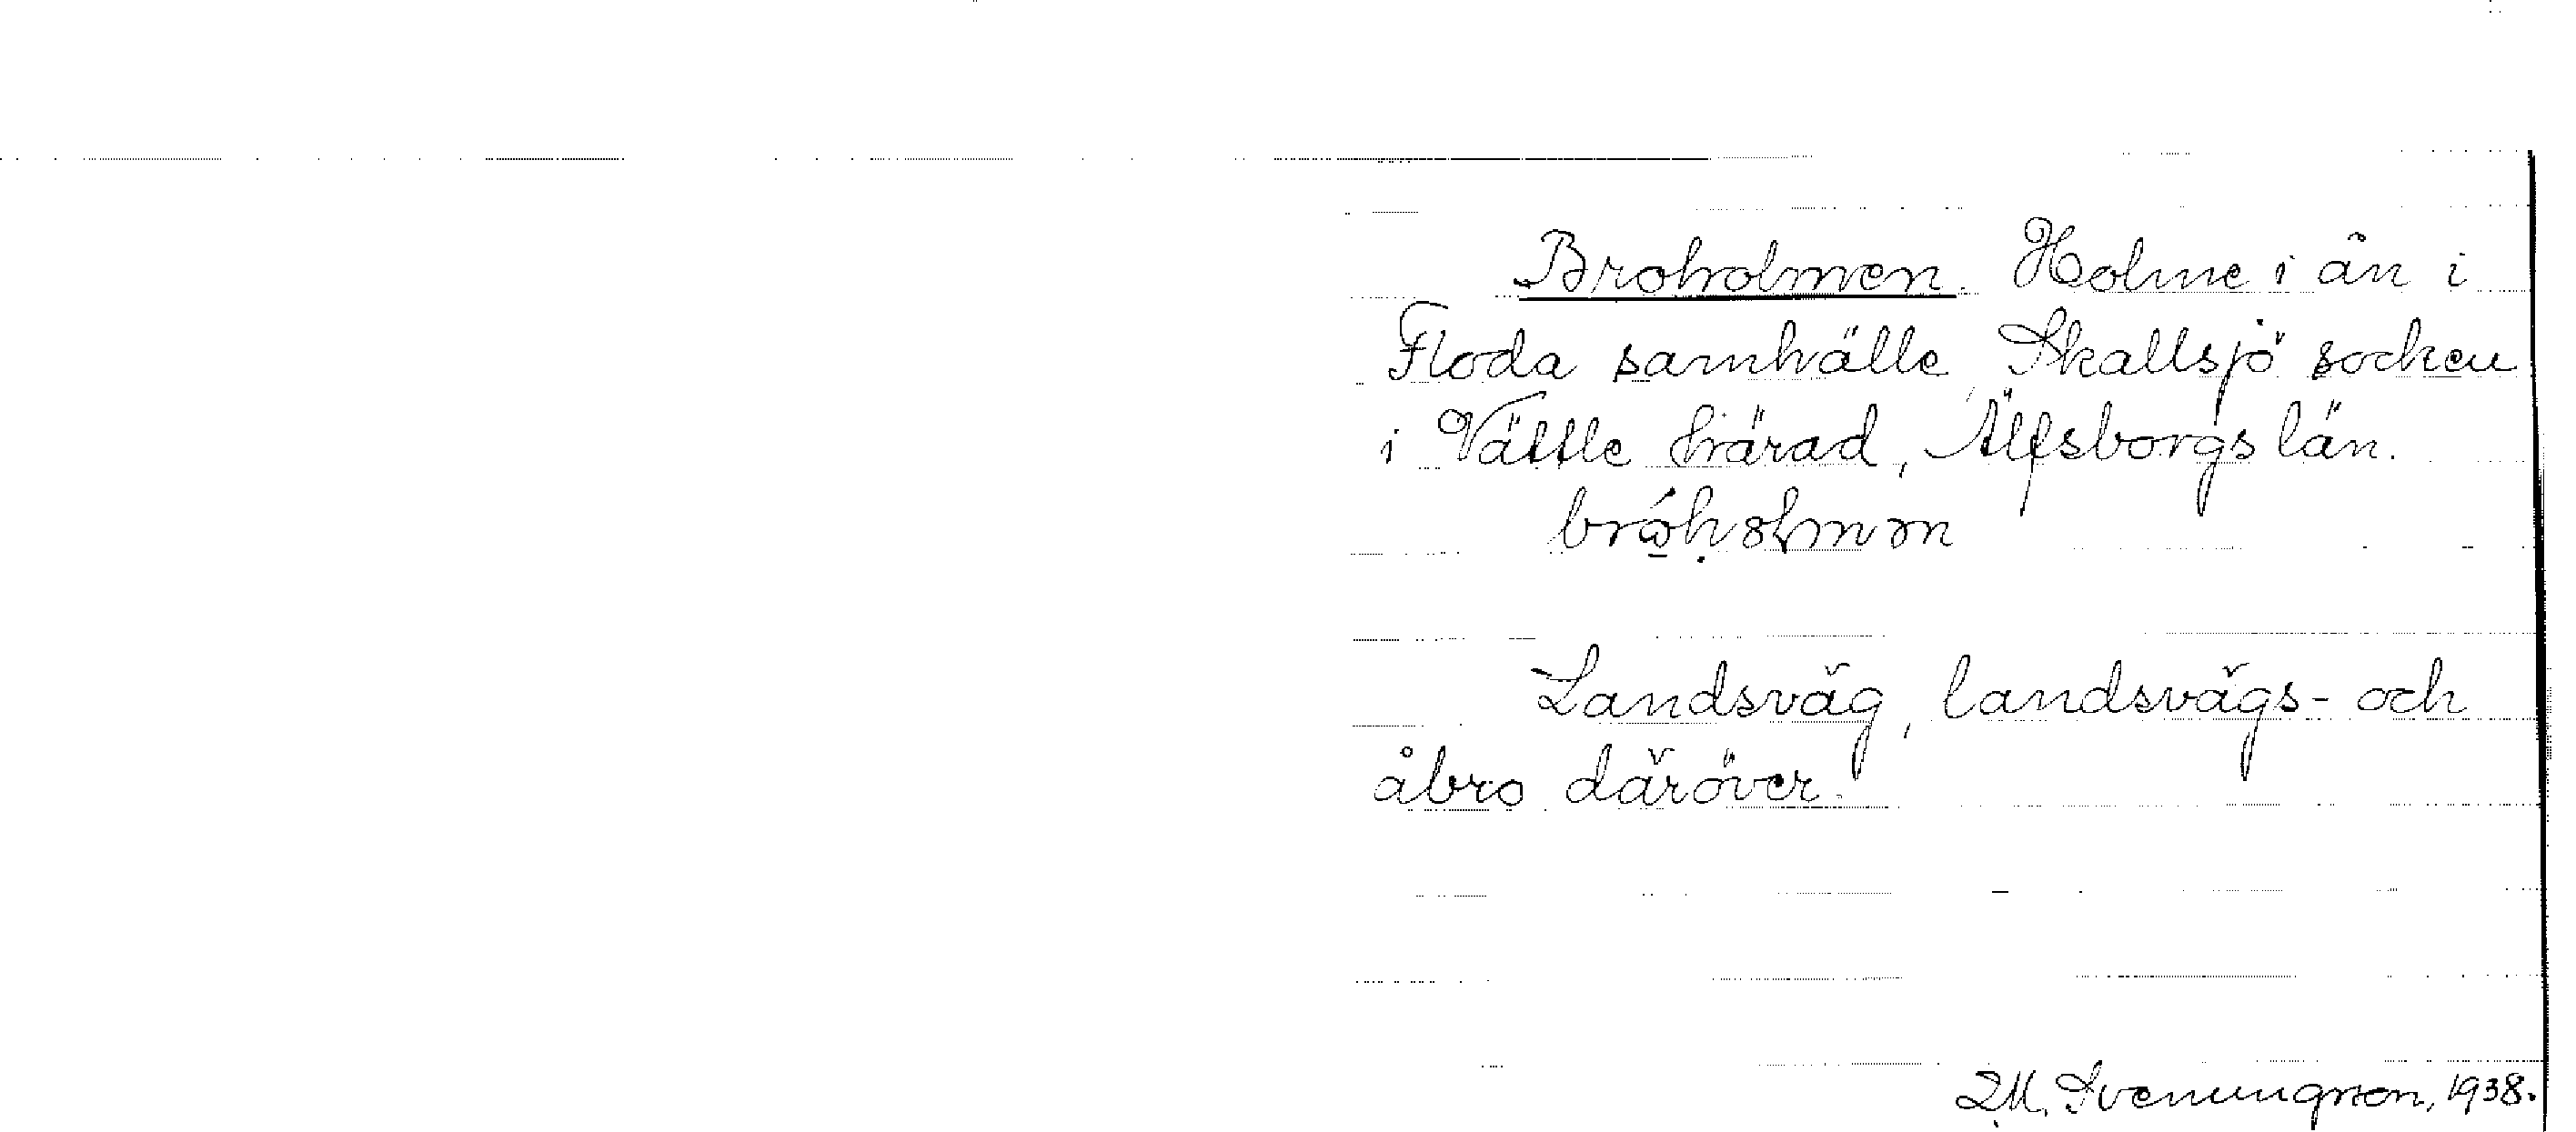 Broholmen. Holme i ån i
Floda samhälle, Skallsjö socken
i Vättle härad, Älfsborgs län.
Landsväg, landsvägs- och
åbro däröver.
M. Svenungson, 1938.